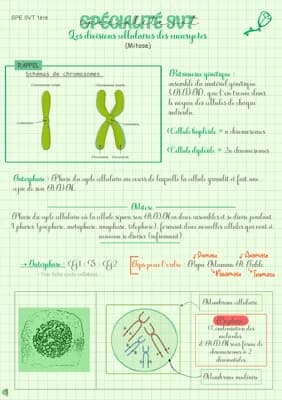 SPE SVT 1ère
SPÉCIALITÉ SVT
Les divisions cellulaires des eucaryotes
(Mitose)
RAPPEL
Schémas de chromosomes
Patrimoine génétique :
ensemble du matériel génétique
(ADN), que l'on trouve dans
le noyau des cellules de chaque
individu.
Cellule haploïde = n chromosomes
Cellule diploïde = 2n chromosomes
Interphase : Phase du cycle cellulaire au cours de laquelle la cellule grandit et fait une
copie de son ADN.
Mitose
Phase du cycle cellulaire où la cellule sépare son ADN en deux ensembles et se divise pendant
4 phases (prophase, métaphase, anaphase, télophase), formant deux nouvelles cellules qui vont à
nouveau se diviser (infiniment).
→ Interphase : G1 : S : G2
Tips pour l'ordre : Papa Maman A Table
Membrane cellulaire
Condensation des
molécules
d'ADN sous forme de
chromosomes à 2
chromatides.
Membrane nucléaire